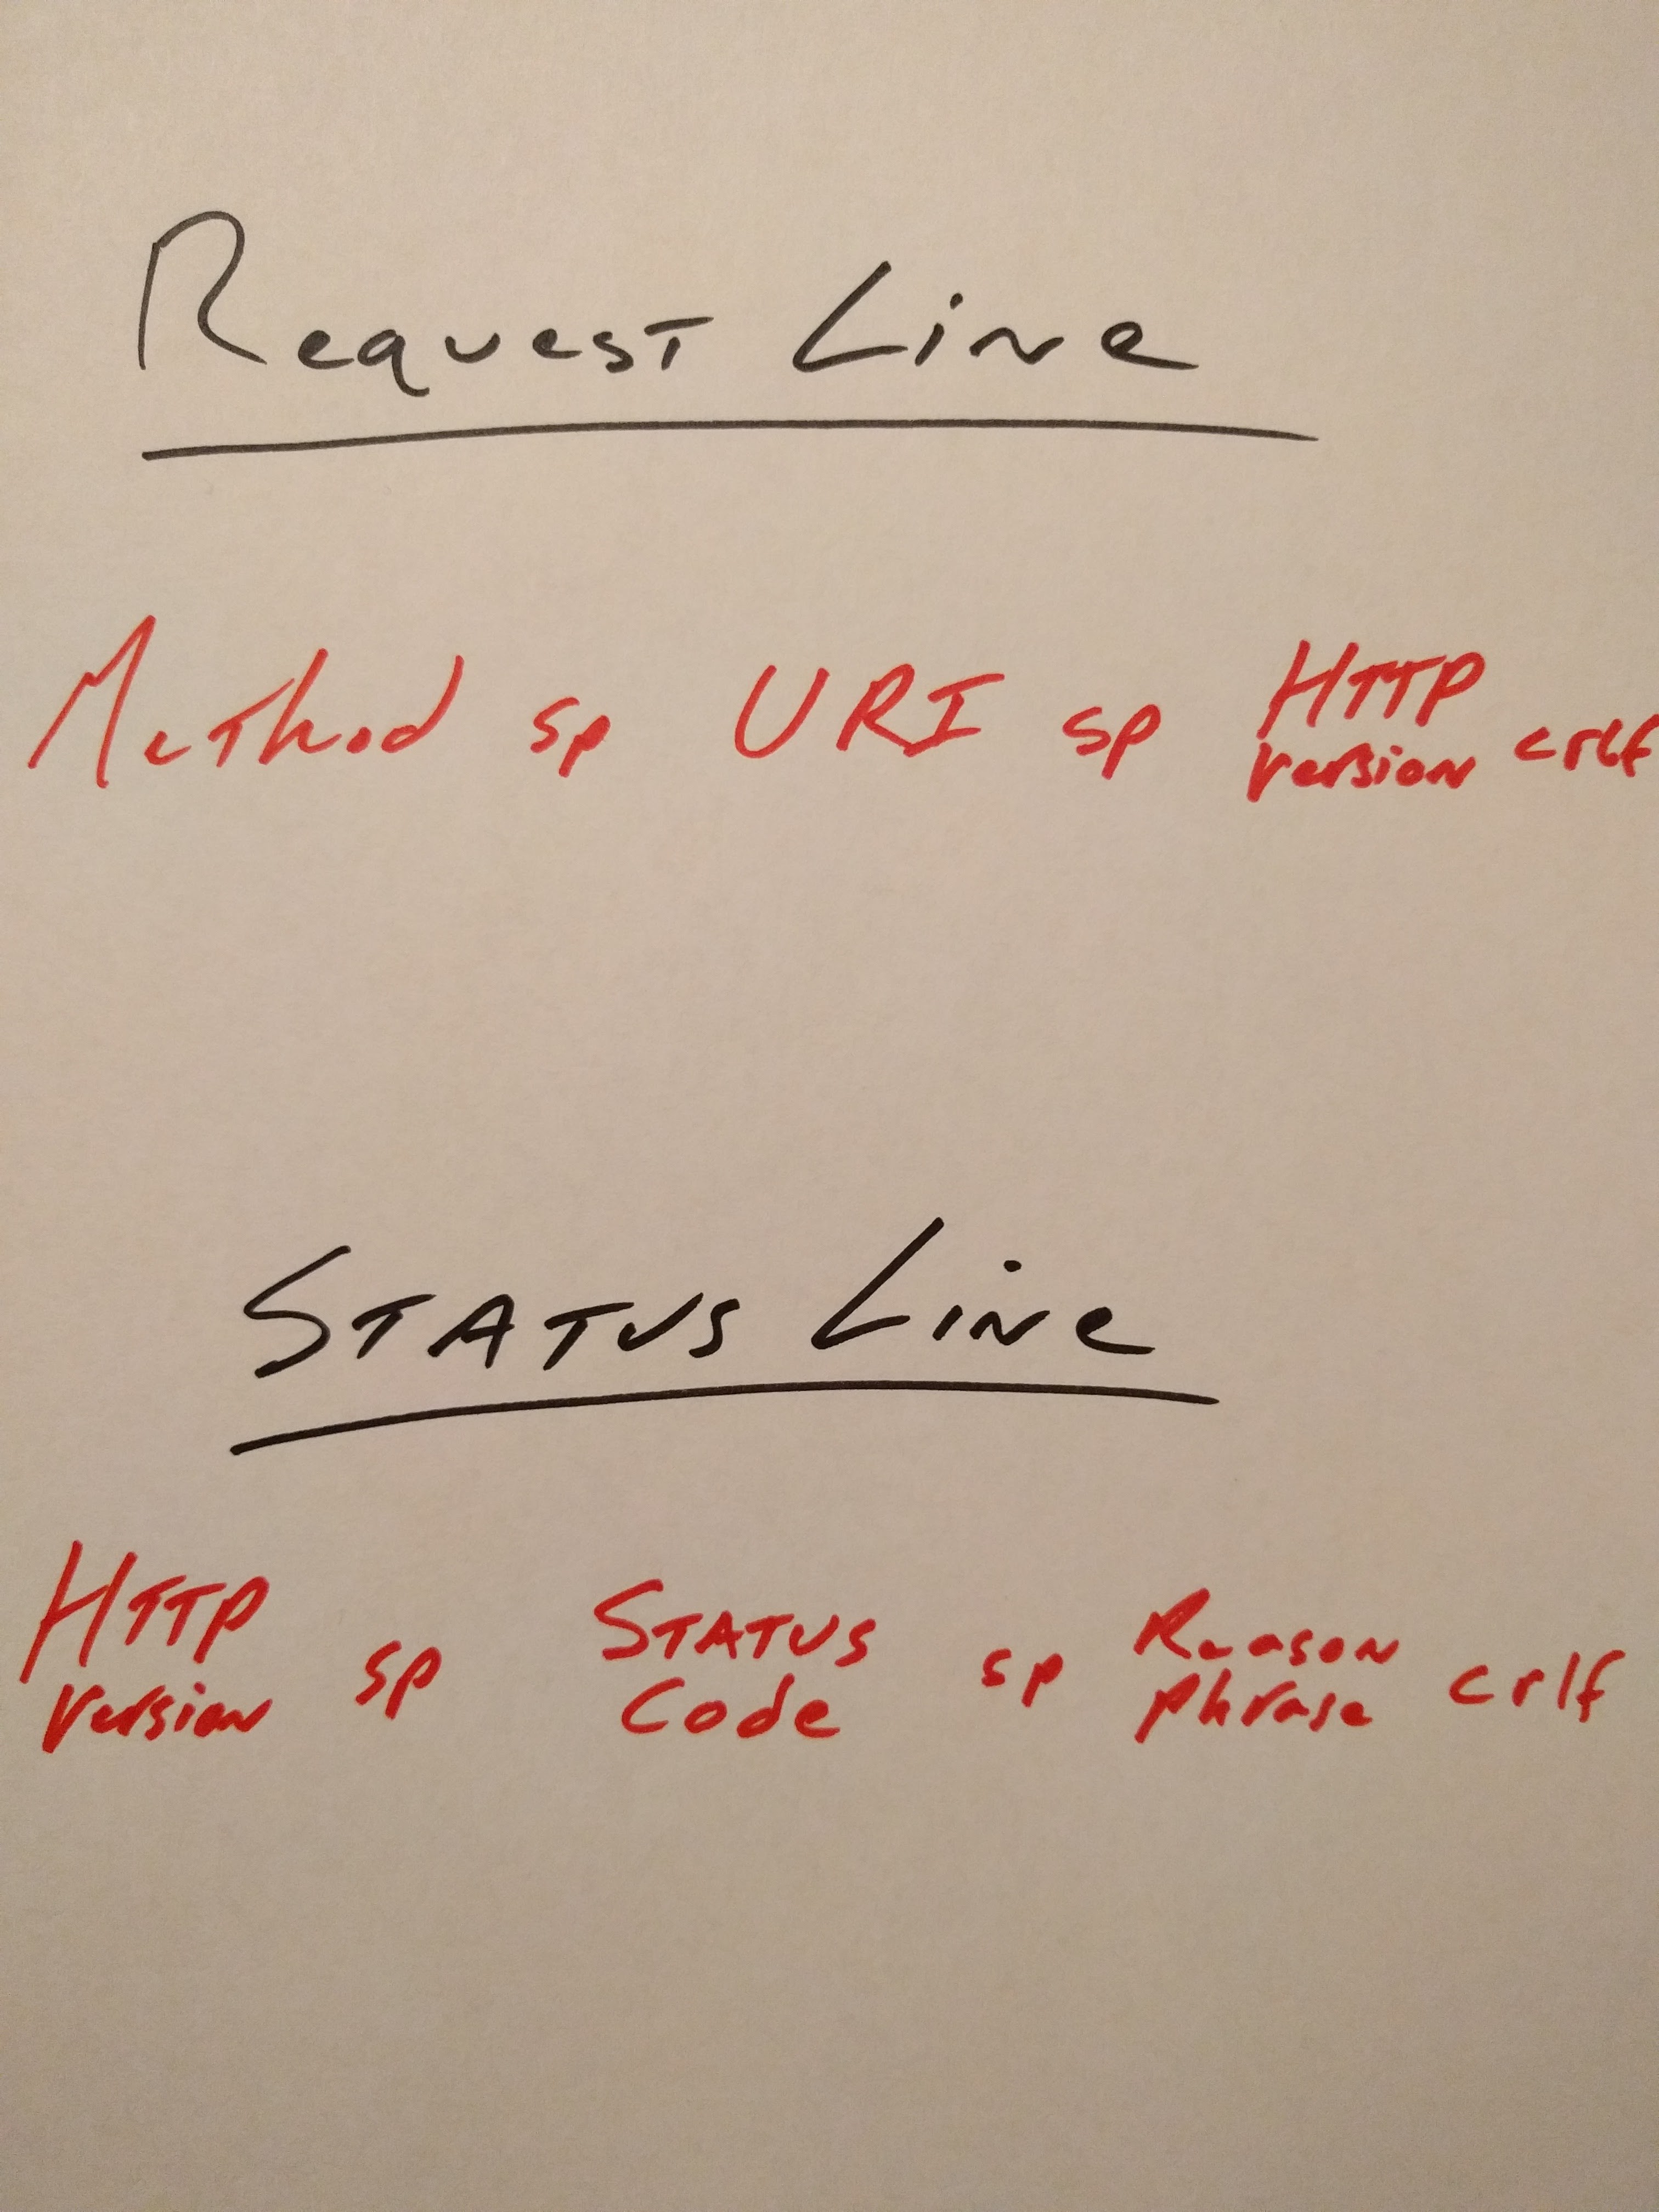 Request Line
Method sp URI sp HTTP version crlf
Status Line
HTTP version sp Status Code sp Reason phrase crlf